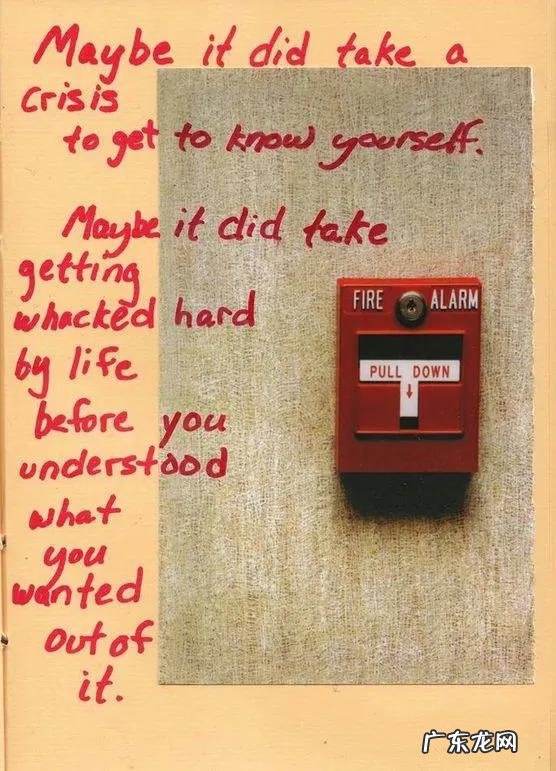 Maybe it did take a
crisis
to get to know yourself.
Maybe it did take
getting
whacked hard
by life
before you
understood
what
you
wanted
out of
it.
FIRE ALARM
PULL DOWN
广东龙网